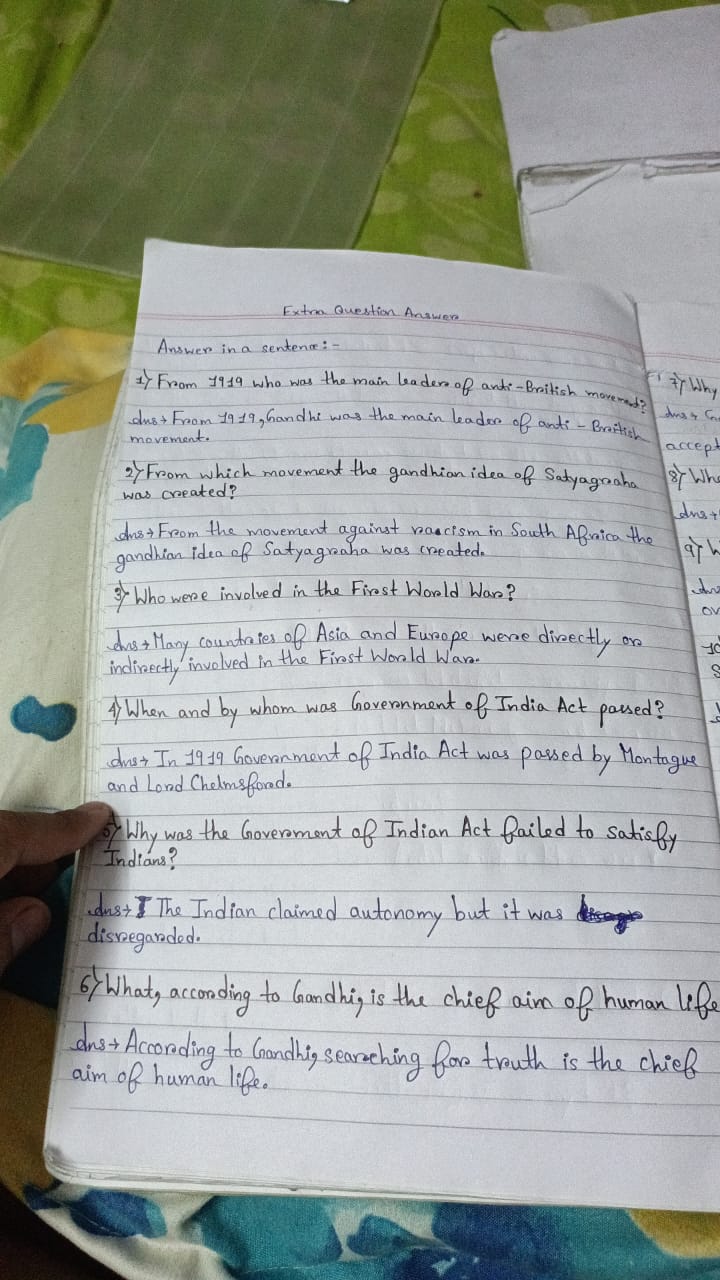 Extra Question Answer
Answer in a sentence:-
1) From 1919 who was the main leader of anti-British movement?
Ans→ From 1919, Gandhi was the main leader of anti-British
movement.
2) From which movement the gandhian idea of Satyagraha
was created?
Ans→ From the movement against raacism in South Africa the
gandhian idea of Satyagraha was created.
3) Who were involved in the First World War?
Ans→ Many countries of Asia and Europe were directly or
indirectly involved in the First World War.
4) When and by whom was Government of India Act passed?
Ans→ In 1919 Government of India Act was passed by Montague
and Lord Chelmsford.
5) Why was the Government of Indian Act failed to satisfy
Indians?
Ans→ The Indian claimed autonomy but it was
disregarded.
6) What, according to Gandhi, is the chief aim of human life
Ans→ According to Gandhi, searching for truth is the chief
aim of human life.
7) Why
Ans→
accept
8)
Ans→
9)
10